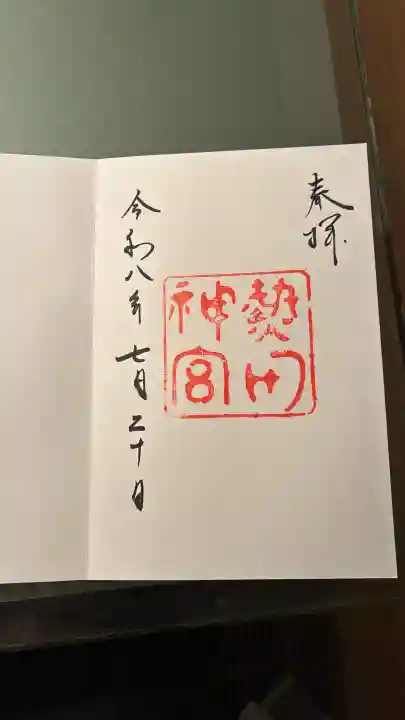 奉拝
熱田
神宮
令和八年七月二十日